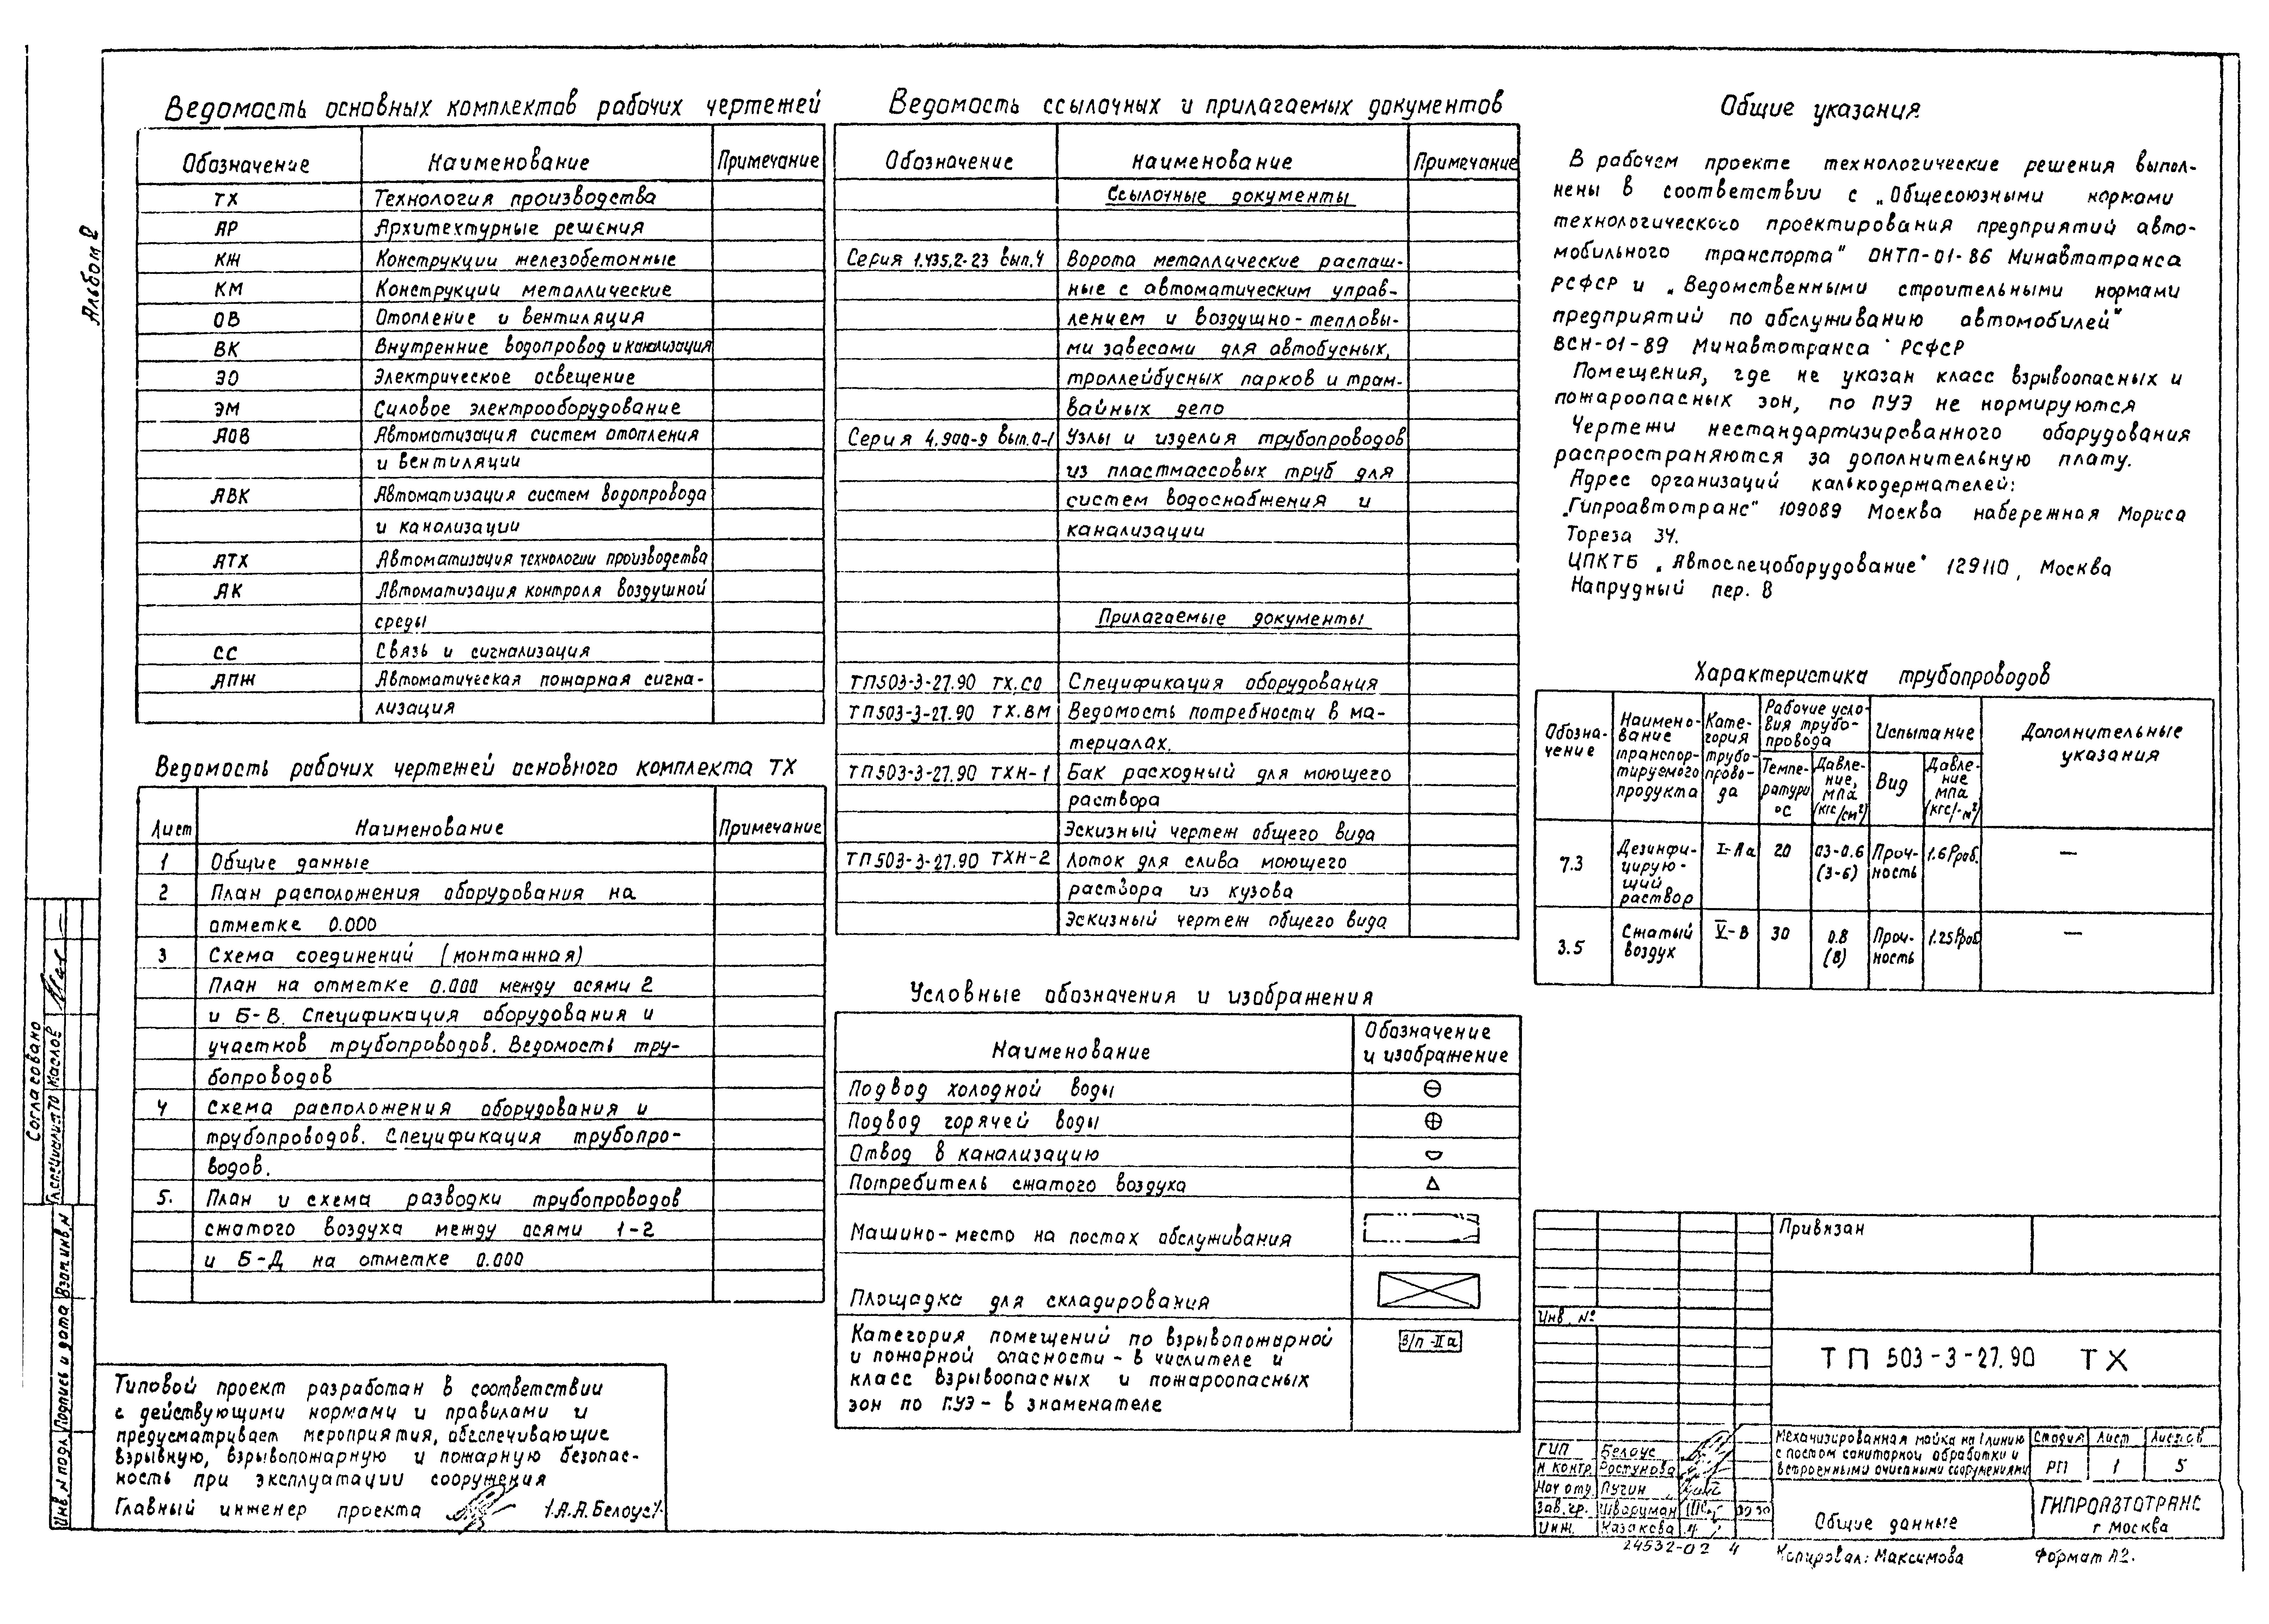 Альбом 2
Ведомость основных комплектов рабочих чертежей
Обозначение Наименование Примечание
ТХ Технология производства
АР Архитектурные решения
КЖ Конструкции железобетонные
КМ Конструкции металлические
ОВ Отопление и вентиляция
ВК Внутренние водопровод и канализация
ЭО Электрическое освещение
ЭМ Силовое электрооборудование
АОВ Автоматизация систем отопления
и вентиляции
АВК Автоматизация систем водопровода
и канализации
АТХ Автоматизация технологии производства
АК Автоматизация контроля воздушной
среды
СС Связь и сигнализация
АПЖ Автоматическая пожарная сигна-
лизация
Ведомость рабочих чертежей основного комплекта ТХ
Лист Наименование Примечание
1 Общие данные
2 План расположения оборудования на
отметке 0.000
3 Схема соединений (монтажная)
План на отметке 0.000 между осями 2
и Б-В. Спецификация оборудования и
участков трубопроводов. Ведомость тру-
бопроводов
4 Схема расположения оборудования и
трубопроводов. Спецификация трубопро-
водов.
5. План и схема разводки трубопроводов
сжатого воздуха между осями 1-2
и Б-Д на отметке 0.000
Типовой проект разработан в соответствии
с действующими нормами и правилами и
предусматривает мероприятия, обеспечивающие
взрывную, взрывопожарную и пожарную безопас-
ность при эксплуатации сооружения
Главный инженер проекта /А.А.Белоус/
Ведомость ссылочных и прилагаемых документов
Обозначение Наименование Примечание
Ссылочные документы
Серия 1.435.2-23 вып.4 Ворота металлические распаш-
ные с автоматическим управ-
лением и воздушно-тепловы-
ми завесами для автобусных,
троллейбусных парков и трам-
вайных депо
Серия 4.900-9 вып.0-1 Узлы и изделия трубопроводов
из пластмассовых труб для
систем водоснабжения и
канализации
Прилагаемые документы
ТП503-3-27.90 ТХ.СО Спецификация оборудования
ТП503-3-27.90 ТХ.ВМ Ведомость потребности в ма-
териалах.
ТП503-3-27.90 ТХН-1 Бак расходный для моющего
раствора
Эскизный чертеж общего вида
ТП503-3-27.90 ТХН-2 Лоток для слива моющего
раствора из кузова
Эскизный чертеж общего вида
Условные обозначения и изображения
Наименование Обозначение
и изображение
Подвод холодной воды
Подвод горячей воды
Отвод в канализацию
Потребитель сжатого воздуха
Машино-место на постах обслуживания
Площадка для складирования
Категория помещений по взрывопожарной
и пожарной опасности - в числителе и
класс взрывоопасных и пожароопасных
зон по ПУЭ - в знаменателе
В/п-IIа
Общие указания
В рабочем проекте технологические решения выпол-
нены в соответствии с „Общесоюзными нормами
технологического проектирования предприятий авто-
мобильного транспорта" ОНТП-01-86 Минавтотранса
РСФСР и „Ведомственными строительными нормами
предприятий по обслуживанию автомобилей"
ВСН-01-89 Минавтотранса РСФСР
Помещения, где не указан класс взрывоопасных и
пожароопасных зон, по ПУЭ не нормируются
Чертежи нестандартизированного оборудования
распространяются за дополнительную плату.
Адрес организаций калькодержателей:
„Гипроавтотранс" 109089 Москва набережная Мориса
Тореза 34.
ЦПКТБ „Автоспецоборудование" 129110, Москва
Напрудный пер. 8
Характеристика трубопроводов
Обозна-
чение
Наимено-
вание
транспор-
тируемого
продукта
Кате-
гория
трубо-
прово-
да
Рабочие усло-
вия трубо-
провода
Испытание
Дополнительные
указания
Темпе-
ратура
°С
Давле-
ние,
МПа
(кгс/см²)
Вид
Давле-
ние
МПа
7.3 Дезинфи-
цирую-
щий
раствор
20 0.3-0.6
(3-6)
Проч-
ность
1.6 Рраб. —
3.5 Сжатый
воздух
V-В 30 0.8
(8)
Проч-
ность
1.25 Рраб —
Привязан
Инв. №
ТП 503-3-27.90 ТХ
ГИП Белоус
Н контр Ростунова
Нач отд. Пугин
Зав. гр. Шварцман
Инж. Казакова
Механизированная мойка на 1 линию
с постом санитарной обработки и
встроенными очистными сооружениями
Стадия Лист Листов
РП 1 5
Общие данные
ГИПРОАВТОТРАНС
г Москва
24532-02 4
Копировал: Максимова
Формат А2.
Согласовано
Маслов
Инв. № подл. Подпись и дата Взам. инв. №